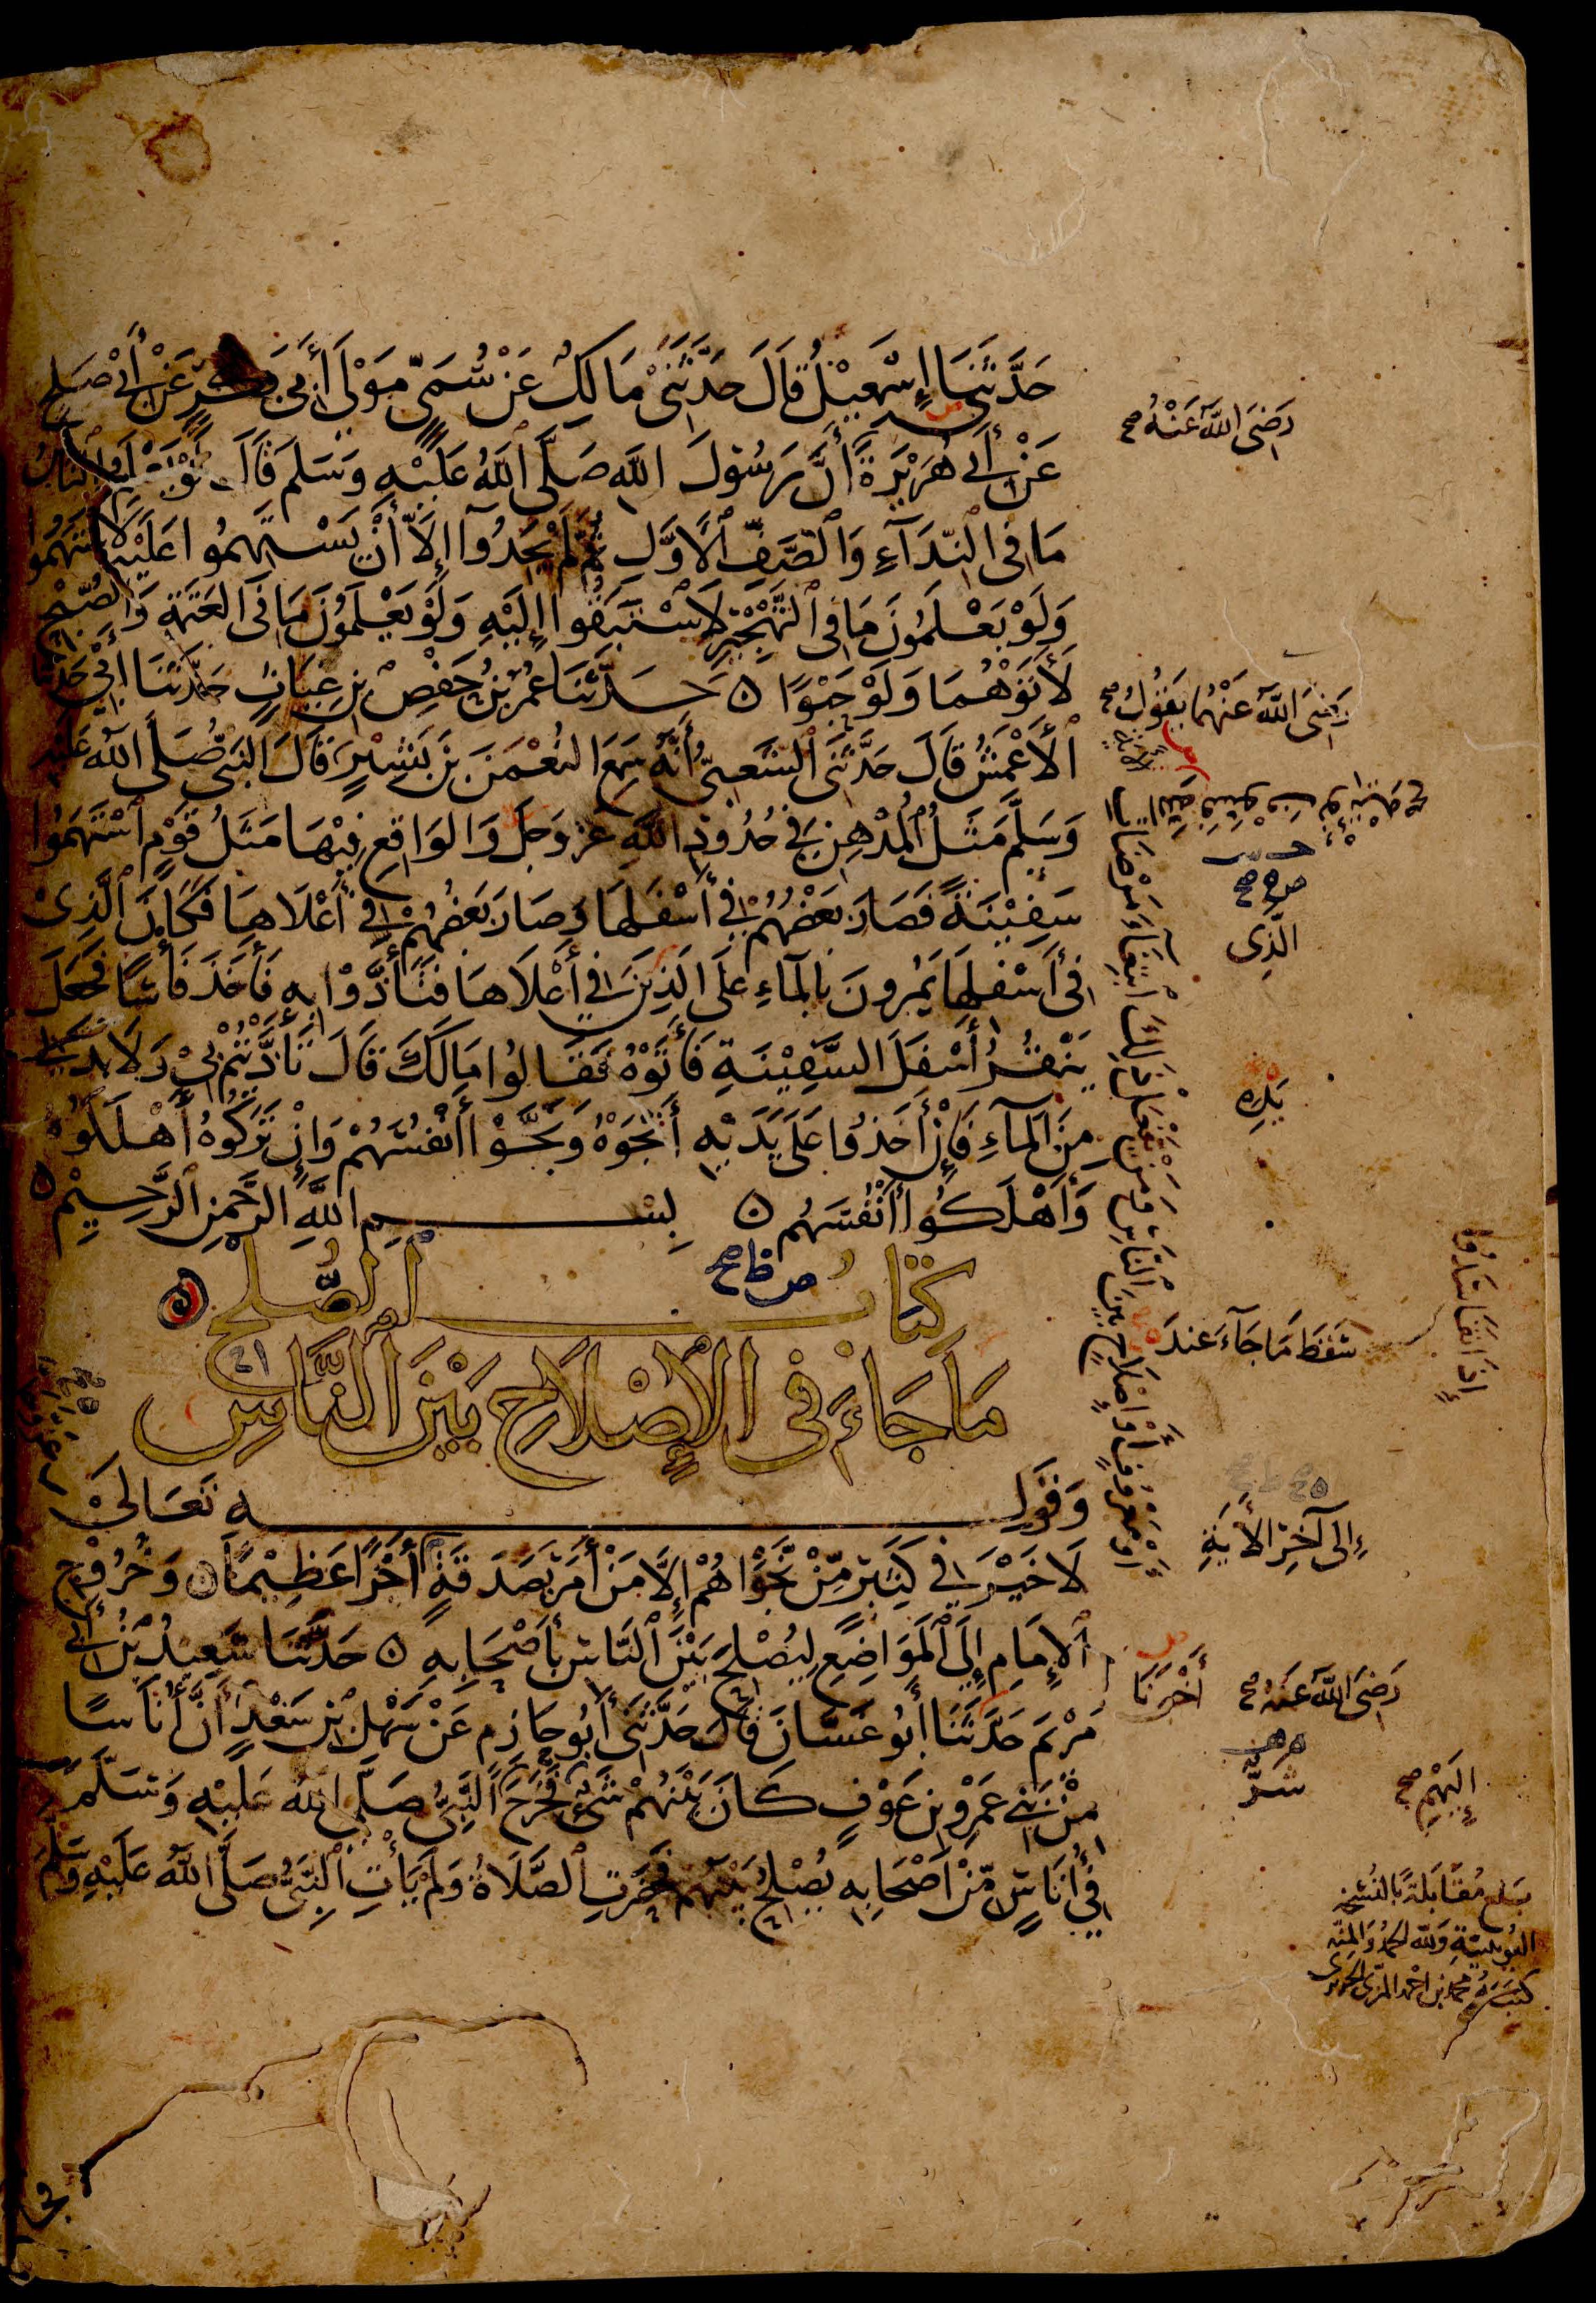 حَدَّثَنَا إِسْمٰعِيْلُ قَالَ حَدَّثَنِي مَالِكٌ عَنْ سُمَيٍّ مَوْلَى أَبِي بَكْرٍ عَنْ أَبِي صَلِحٍ
عَنْ أَبِي هُرَيْرَةَ أَنَّ رَسُولَ اللَّهِ صَلَّى اللَّهُ عَلَيْهِ وَسَلَّمَ قَالَ لَوْ يَعْلَمُ النَّاسُ
مَا فِي النِّدَآءِ وَالصَّفِّ الْأَوَّلِ ثُمَّ لَمْ يَجِدُوٓا إِلَّا أَنْ يَسْتَهِمُوا عَلَيْهِ لَاسْتَهَمُوا
وَلَوْ يَعْلَمُونَ مَا فِي التَّهْجِيْرِ لَاسْتَبَقُوا إِلَيْهِ وَلَوْ يَعْلَمُوْنَ مَا فِي الْعَتَمَةِ وَالصُّبْحِ
لَأَتَوْهُمَا وَلَوْ حَبْوًا ۝ حَدَّثَنَا عُمَرُ بْنُ حَفْصِ بْنِ غِيَاثٍ حَدَّثَنَا أَبِي حَدَّثَنَا
الْأَعْمَشُ قَالَ حَدَّثَنِي الشَّعْبِيُّ أَنَّهُ سَمِعَ النُّعْمٰنَ بْنَ بَشِيْرٍ قَالَ النَّبِيُّ صَلَّى اللَّهُ عَلَيْهِ
وَسَلَّمَ مَثَلُ الْمُدْهِنِ فِي حُدُودِ اللَّهِ عَزَّ وَجَلَّ وَالْوَاقِعِ فِيْهَا مَثَلُ قَوْمٍ اسْتَهَمُوا
سَفِيْنَةً فَصَارَ بَعْضُهُمْ فِي أَسْفَلِهَا وَصَارَ بَعْضُهُمْ فِي أَعْلَاهَا فَكَانَ الَّذِيْ
فِي أَسْفَلِهَا يَمُرُّونَ بِالْمَآءِ عَلَى الَّذِيْنَ فِي أَعْلَاهَا فَتَأَذَّوْا بِهِ فَأَخَذَ فَأْسًا فَجَعَلَ
يَنْقُرُ أَسْفَلَ السَّفِيْنَةِ فَأَتَوْهُ فَقَالُوا مَا لَكَ قَالَ تَأَذَّيْتُمْ بِيْ وَلَا بُدَّ لِي
مِنَ الْمَآءِ فَإِنْ أَخَذُوا عَلَى يَدَيْهِ أَنْجَوْهُ وَنَجَّوْا أَنْفُسَهُمْ وَإِنْ تَرَكُوهُ أَهْلَكُوهُ
وَأَهْلَكُوا أَنْفُسَهُم ۝ بِسْمِ اللَّهِ الرَّحْمٰنِ الرَّحِيْمِ ۝
كِتَابُ الصُّلْحِ
مَا جَاءَ فِي الْإِصْلَاحِ بَيْنَ النَّاسِ
وَقَوْلِهِ تَعَالَىٰ
لَا خَيْرَ فِي كَثِيْرٍ مِّنْ نَّجْوَاهُمْ إِلَّا مَنْ أَمَرَ بِصَدَقَةٍ أَجْرًا عَظِيْمًا ۝ وَخُرُوْجِ
الْإِمَامِ إِلَى الْمَوَاضِعِ لِيُصْلِحَ بَيْنَ النَّاسِ بِأَصْحَابِهِ ۝ حَدَّثَنَا سَعِيْدُ بْنُ أَبِي
مَرْيَمَ حَدَّثَنَا أَبُو غَسَّانَ قَالَ حَدَّثَنِي أَبُو حَازِمٍ عَنْ سَهْلِ بْنِ سَعْدٍ أَنَّ أُنَاسًا
مِّنْ بَنِي عَمْرِو بْنِ عَوْفٍ كَانَ بَيْنَهُمْ شَيْءٌ فَخَرَجَ النَّبِيُّ صَلَّى اللَّهُ عَلَيْهِ وَسَلَّمَ
فِي أُنَاسٍ مِّنْ أَصْحَابِهِ يُصْلِحُ بَيْنَهُمْ فَحَضَرَتِ الصَّلَاةُ وَلَمْ يَأْتِ النَّبِيُّ صَلَّى اللَّهُ عَلَيْهِ وَسَلَّمَ
رَضِيَ اللَّهُ عَنْهُ صح
رَضِيَ اللَّهُ عَنْهُمَا يَقُولُ صح
الَّذِي
سَقَطَ مَا جَآءَ عِندَ
إِذَا تَفَاسَدُوا
إِلَى آخِرِ الْأٰيَةِ
أَوْ مَعْرُوفٍ أَوْ إِصْلَاحٍ بَيْنَ النَّاسِ وَمَنْ يَفْعَلْ ذٰلِكَ ابْتِغَآءَ مَرْضَاتِ اللَّهِ فَسَوْفَ نُؤْتِيهِ
أَخْبَرَنَا
رَضِيَ اللَّهُ عَنهُ صح
شَرٌّ
إِلَيْهِمْ صح
بَلَغَ مُقَابَلَةً بِالنُّسْخَةِ
الْيُونِينِيَّةِ وَلِلَّهِ الْحَمْدُ وَالْمِنَّة
كَتَبَهُ مُحَمَّد بن أَحْمَد المِزِّي الحريري